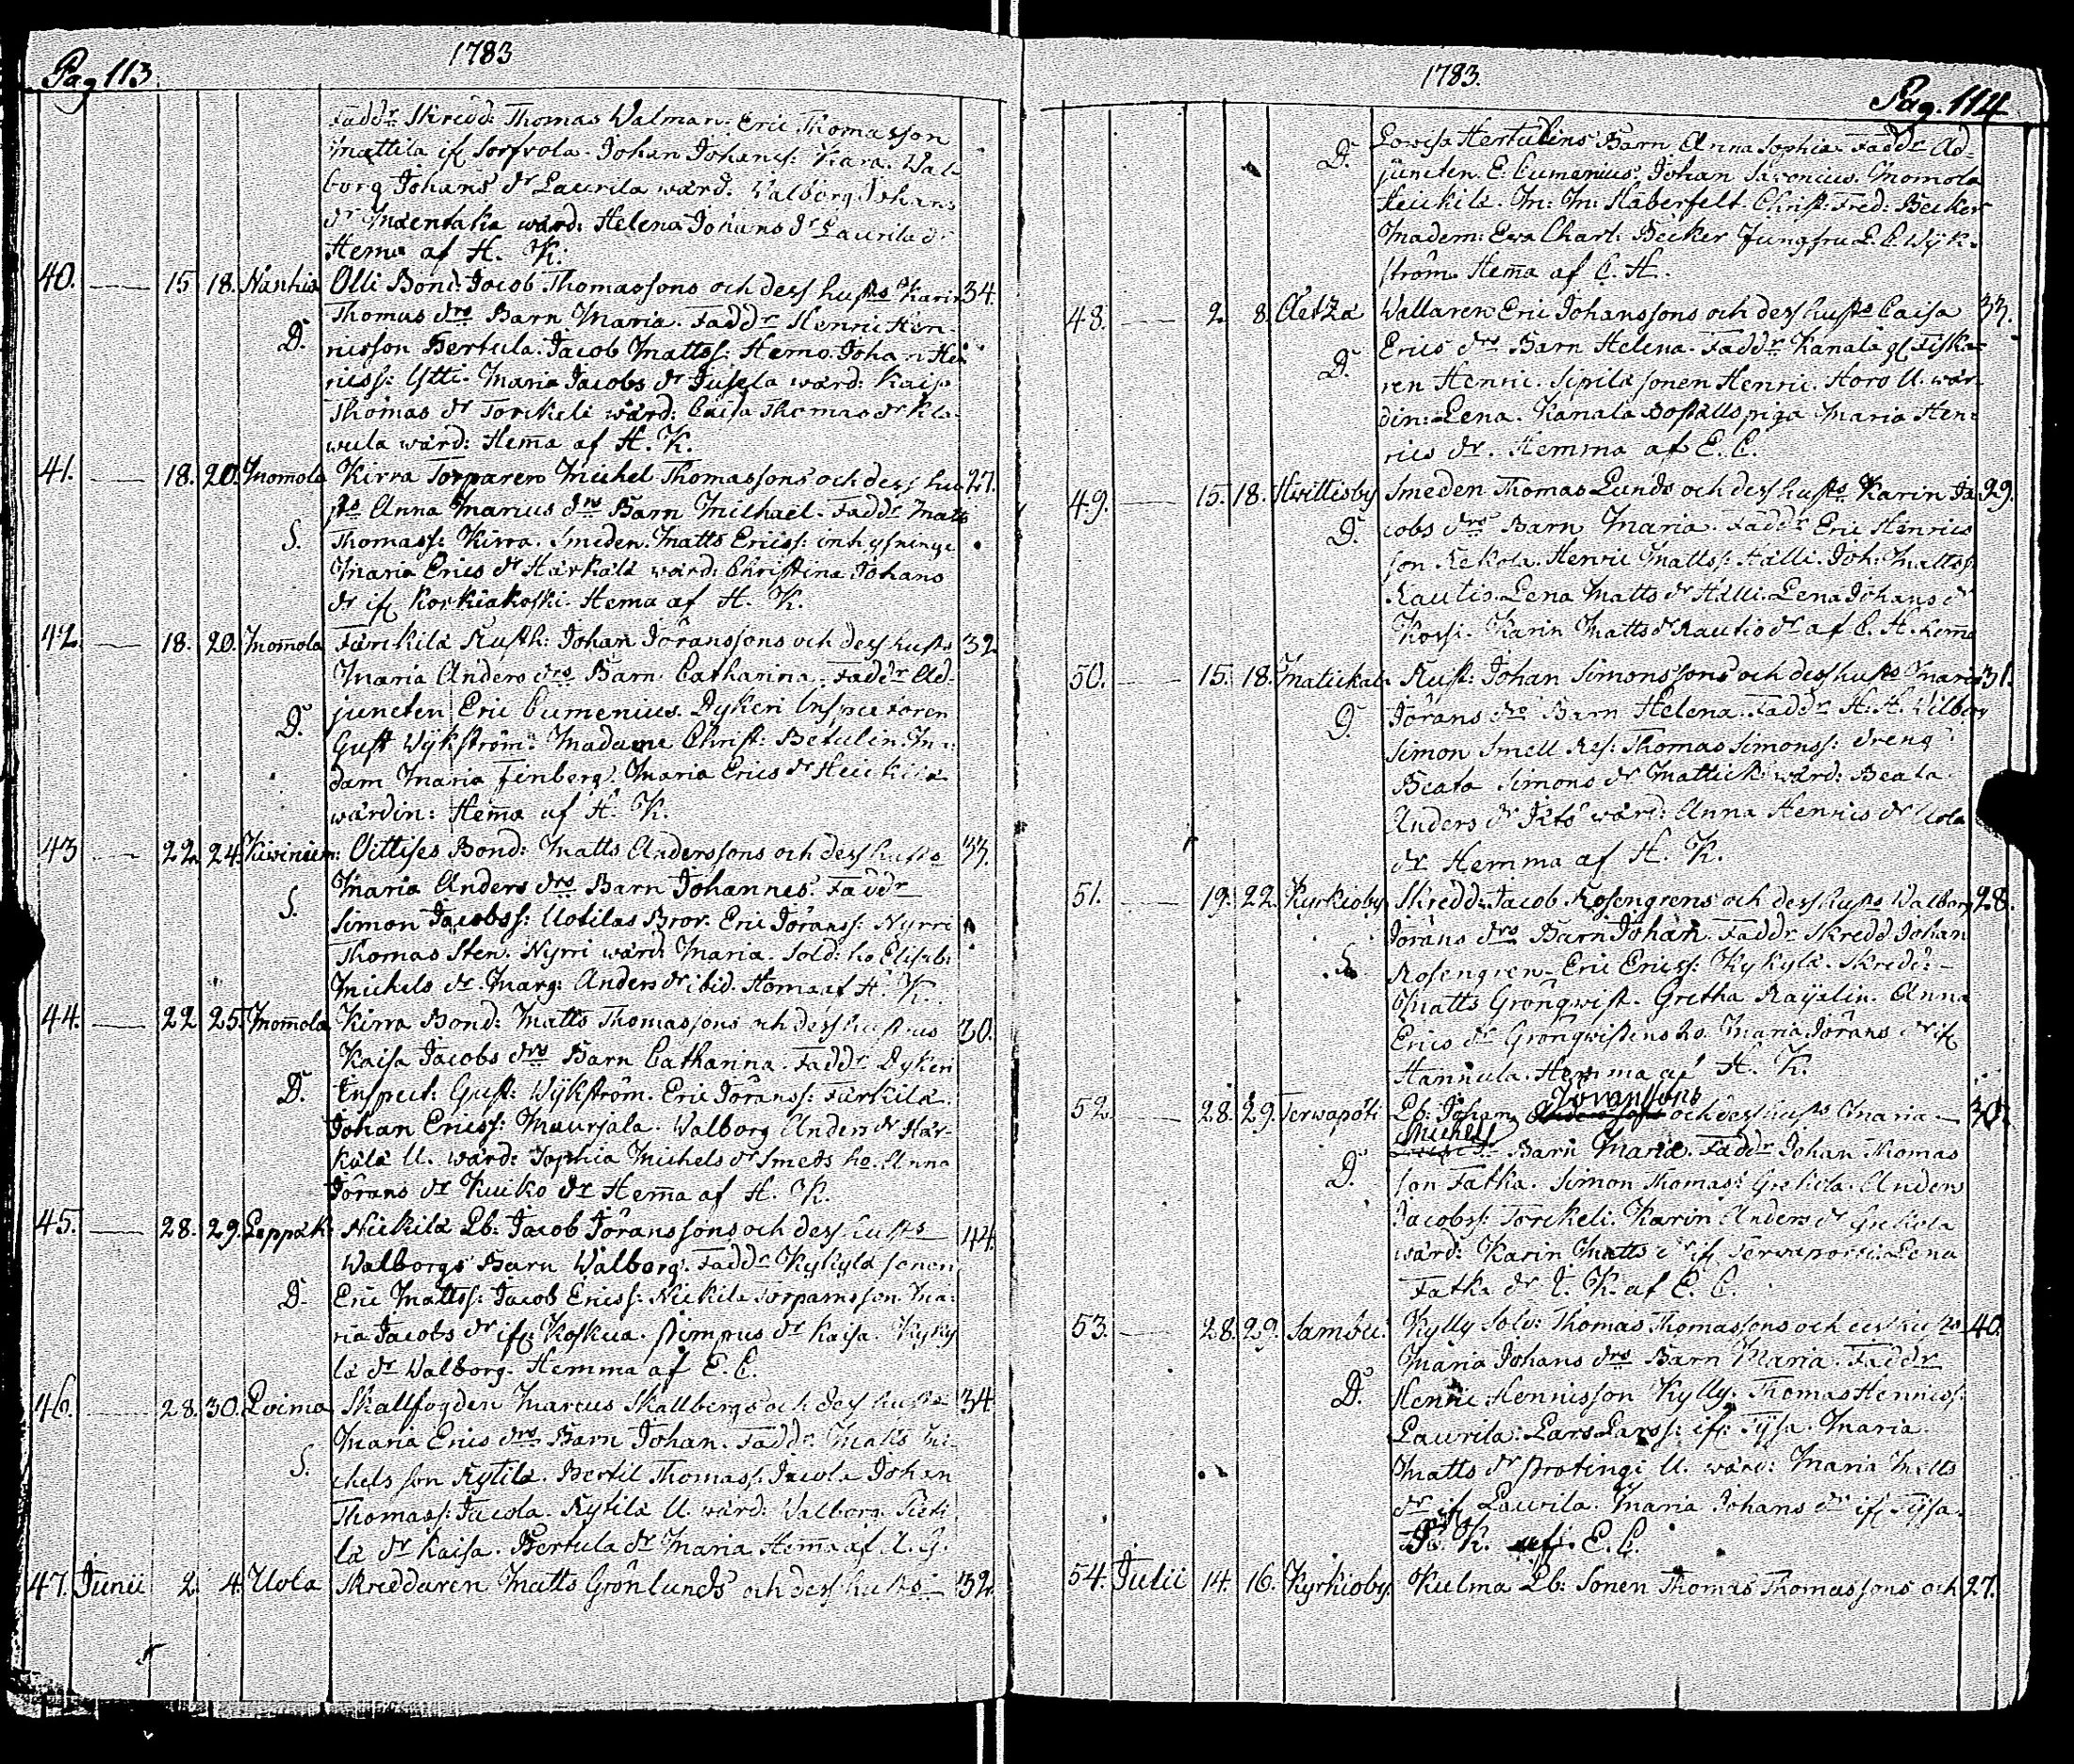 Pag 113
1783
Faddr Skredd: Thomas Walman. Eric Thomasson
Mattila if Sorfvola. Johan Johanss: Kara. Wal-
borg Johans dr Laurila wärd. Walborg Johans
dr Mäentaka wärd: Helena Johans dr Laurila dr
Hema af H. K.
40. — 15 18. Olli Bond: Jacob Thomassons och dess hustrs Karin 34.
Thomas drs Barn Maria. Faddr Henric Hen-
D. ricsson Bertula. Jacob Mattss: Hemo. Johan Hen
ricss: Ytti. Maria Jacobs dr wärd: Kaisa
Thomas dr Torckeli wärd: Caisa Thomas dr Kla-
wula wärd: Hema af H. K.
41. — 18. 20. Mom̄ola Kirra Torparen Michel Thomassons och dess hu 27.
strs Anna Marcus drs Barn Michael. Faddr Matts
S. Thomass: Kirra. Smeden Matts Ericss: inhysninge
Maria Erics dr Härkälä wärd: Christina Johans
dr if Korkiakoski. Hema af H. K.
42 — 18. 20. Mom̄ola Färckilä Rusth: Johan Jöranssons och dess hustrs 32
Maria Anders drs Barn Catharina. Faddr Ad-
juncten Eric Cumenius. Dykeri Inspectoren
D. Gust Wÿkström. Madame Christ: Betulin. Ma-
dam Maria Finberg. Maria Erics dr Heickilä
wärdin: Hem̄a af H. K.
43 — 22. 24. Kiviniem: Oittises Bond: Matts Anderssons och dess hustrs 33.
Maria Anders drs Barn Johannes. Faddr
S. Simon Jacobss: Uotilas Bror. Eric Jöranss: Nyrri
Thomas Sten. Nyrri wärd: Maria. Sold: ho Elisab:
Michels dr. Marg: Anders dr ibid. Hema af H. K.
44. — 22 25. Mom̄ola Kirra Bond: Matts Thomassons och dess hustrus 30.
Kaisa Jacobs drs Barn Catharina. Faddr Dykeri
D. Inspect: Gust: Wÿkström. Eric Jöranss: Färkilä.
Johan Ericss: Maurjala. Walborg Anders dr Här-
kälä U. wärd: Sophia Michels dr Smeds ho. Anna
Jörans dr Kuiko dr Hem̄a af H. K.
45. — 28. 29. Leppäk: Nickilä Lb: Jacob Jöranssons och dess hustrs 44.
Walborgs Barn Walborg. Faddr Kykylä sonen
D. Eric Mattss: Jacob Ericss: Nickilä Torparns son. Ma-
ria Jacobs dr if: Koskua. dr Kaisa. Kyky
lä dr Walborg. Hemma af E. C.
46. — 28. 30. Loima Skallfogden Marcus Skallbergs och dess hustrs 34
Maria Erics drs Barn Johan. Faddr Matts Mi-
S. chelsson Kytilä. Bertil Thomass: Jacola Johan
Thomass: Jacola. Kytilä U. wärd: Walborg.
lä dr Kaisa. Bertula dr Maria Hem̄a af A. G.
47. Junii 2. 4. Uola Skreddaren Matts Grönlunds och dess hustrs 32
1783.
Pag. 114
Lovisa Hertulins Barn Anna Sophia. Faddr Ad-
D. juncten E. Cumenius. Johan Saxonius. Mom̄ola
Heickilä. M: M: Häberfelt. Christ: Fred: Becker
Madem: Eva Charl: Becker Jungfru L. C. Wÿk-
ström. Hem̄a af C. H.
48. — 2. 8. Aetza Wallaren Eric Johanssons och dess hustrs Caisa 33.
Erics drs Barn Helena. Faddr Kanala gl Fiska-
D. ren Henric. Sipilä sonen Henric. Horo U. wär-
din: Lena. Kanala Boställspiga Maria Hen-
rics dr. Hemma af E. C.
49. — 15. 18. Hvittisby Smeden Thomas Lunds och dess hustrs Karin Ja 29.
D. cobs drs Barn Maria. Faddr Eric Henrics
son Kekola. Henric Mattss: Hälli. Joh: Mattss:
Rautio. Lena Matts dr Hälli. Lena Johans dr
Kossi. Karin Matts dr Rautio dr af C. H. hem̄a
50. — 15. 18. Matickala Rust: Johan Simonssons och dess hustrs Maria 31.
D. Jörans drs Barn Helena. Faddr H. H. Wilberg
Simon Smell Res: Thomas Simonss: dreng
Beata Simons dr Mattick: wärd: Beata
Anders dr wärd: Anna Henrics dr Uola
dr Hemma af H. K.
51. — 19. 22. Kyrkioby Skredd: Jacob Rosengrens och dess hustrs Walborg 28.
Jörans drs Barn Johan. Faddr Skredd Johan
S. Rosengren. Eric Ericss: Kykylä. Skredd:
Matts Gröngwist. Gretha Raÿalin. Anna
Erics dr Gröngwistens ho. Maria Jörans dr if
Hannula. Hemma af H. K.
52. — 28. 29. Terwapöri Lb: Johan Joranssons och dess hustrs Maria — 30.
D. Michels dr Barn Maria. Faddr Johan Thomas
son Fatka. Simon Thomass: Grekola. Anders
Jacobss: Torckeli. Karin Anders dr Grekola
wärd: Karin Matts dr if Lena
Fatka dr I. K. af E. C.
53. — 28. 29. Sambu: Kylly Sold: Thomas Thomassons och dess hustrs 40.
Maria Johans drs Barn Maria. Faddr
D. Henric Henricsson Kylly. Thomas Henricss:
Laurila: Lars Larss: if: Tÿsa. Maria
Matts dr Protingi U. wärd: Maria Matts
dr if Laurila. Maria Johans dr if Tÿsa.
I. K. af. E. C.
54. Julii 14. 16. Kyrkioby. Kulma Lb: Sonen Thomas Thomassons och 27.